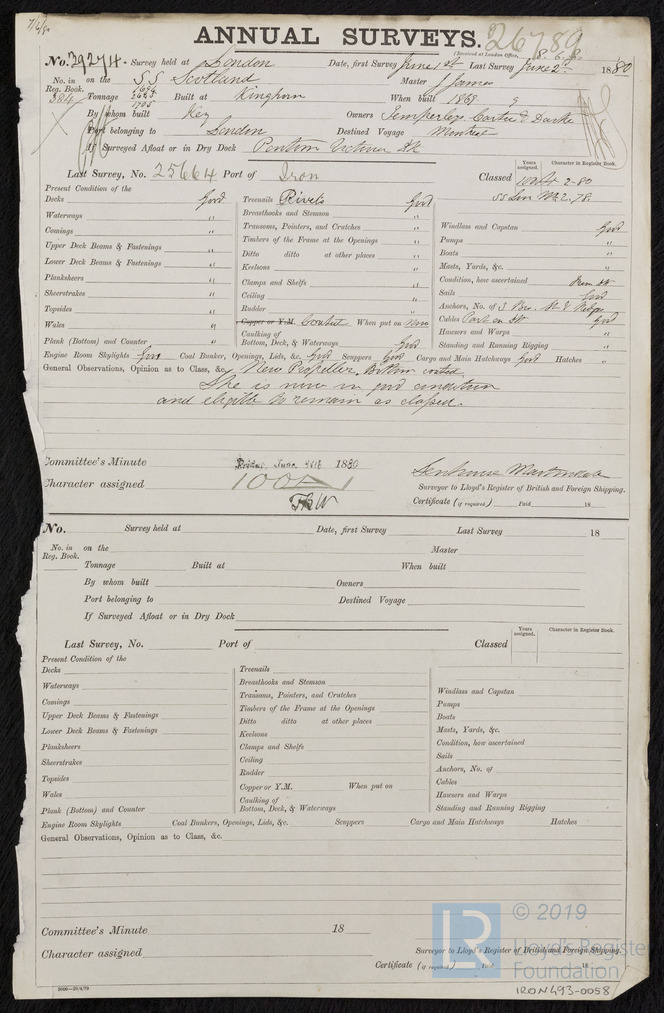 7/6/80
ANNUAL SURVEYS. 26789
(Received at London Office, 8.6.80
No. 29274. Survey held at London Date, first Survey June 1st Last Survey June 2d 1880
No. in Reg. Book. on the SS Scotland Master J James
384 Tonnage 1694 2645 1705 Built at Kinghorn When built 1869 9
By whom built Key Owners Temperleys Carter & Darke
Port belonging to London Destined Voyage Montreal
If Surveyed Afloat or in Dry Dock Victoria Dk
Last Survey, No. 25664 Port of Iron Classed Years assigned. Character in Register Book.
2-80
SS Lon No. 2. 78.
Present Condition of the
Decks Good
Waterways "
Comings "
Upper Deck Beams & Fastenings "
Lower Deck Beams & Fastenings "
Planksheers "
Sheerstrakes "
Topsides "
Wales "
Plank (Bottom) and Counter "
Treenails Rivets Good
Breasthooks and Stemson "
Transoms, Pointers, and Crutches "
Timbers of the Frame at the Openings "
Ditto ditto at other places "
Keelsons "
Clamps and Shelfs "
Ceiling "
Rudder "
Copper or Y.M. Coated When put on Now
Caulking of Bottom, Deck, & Waterways Good
Windlass and Capstan Good
Pumps "
Boats "
Masts, Yards, &c. "
Condition, how ascertained
Sails Good
Anchors, No. of 3 Bow. St &
Cables Part on Dk Good
Hawsers and Warps "
Standing and Running Rigging "
Engine Room Skylights Good Coal Bunker, Openings, Lids, &c. Good Scuppers Good Cargo and Main Hatchways Good Hatches "
General Observations, Opinion as to Class, &c. New Propeller. Bottom coated.
She is now in good condition
and eligible to remain as classed.
Committee's Minute Friday June 1880
Character assigned 100A1
Surveyor to Lloyd's Register of British and Foreign Shipping.
Certificate (if required) Paid 18
No. Survey held at Date, first Survey Last Survey 18
No. in Reg. Book. on the Master
Tonnage Built at When built
By whom built Owners
Port belonging to Destined Voyage
If Surveyed Afloat or in Dry Dock
Last Survey, No. Port of Classed Years assigned. Character in Register Book.
Present Condition of the
Decks
Waterways
Comings
Upper Deck Beams & Fastenings
Lower Deck Beams & Fastenings
Planksheers
Sheerstrakes
Topsides
Wales
Plank (Bottom) and Counter
Treenails
Breasthooks and Stemson
Transoms, Pointers, and Crutches
Timbers of the Frame at the Openings
Ditto ditto at other places
Keelsons
Clamps and Shelfs
Ceiling
Rudder
Copper or Y.M. When put on
Caulking of Bottom, Deck, & Waterways
Windlass and Capstan
Pumps
Boats
Masts, Yards, &c.
Condition, how ascertained
Sails
Anchors, No. of
Cables
Hawsers and Warps
Standing and Running Rigging
Engine Room Skylights Coal Bunkers, Openings, Lids, &c. Scuppers Cargo and Main Hatchways Hatches
General Observations, Opinion as to Class, &c.
Committee's Minute 18
Character assigned
Surveyor to Lloyd's Register of British and Foreign Shipping.
Certificate (if required) 18
LR © 2019 Lloyd's Register Foundation
IRON493-0058